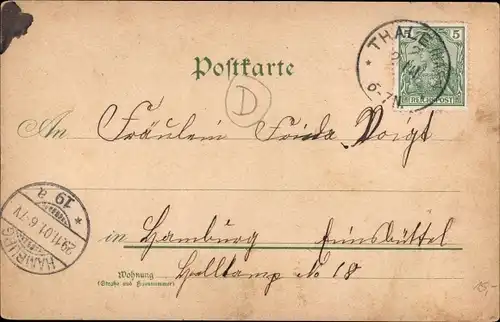 THALE
5
REICHSPOST
6-7N
Postkarte
D
An Fräulein Frida Voigt
HAMBURG
29.11.01.6-7V
* 19 a.
in Hamburg Eimsbüttel
Wohnung
(Straße und Hausnummer)
No 18
25,-